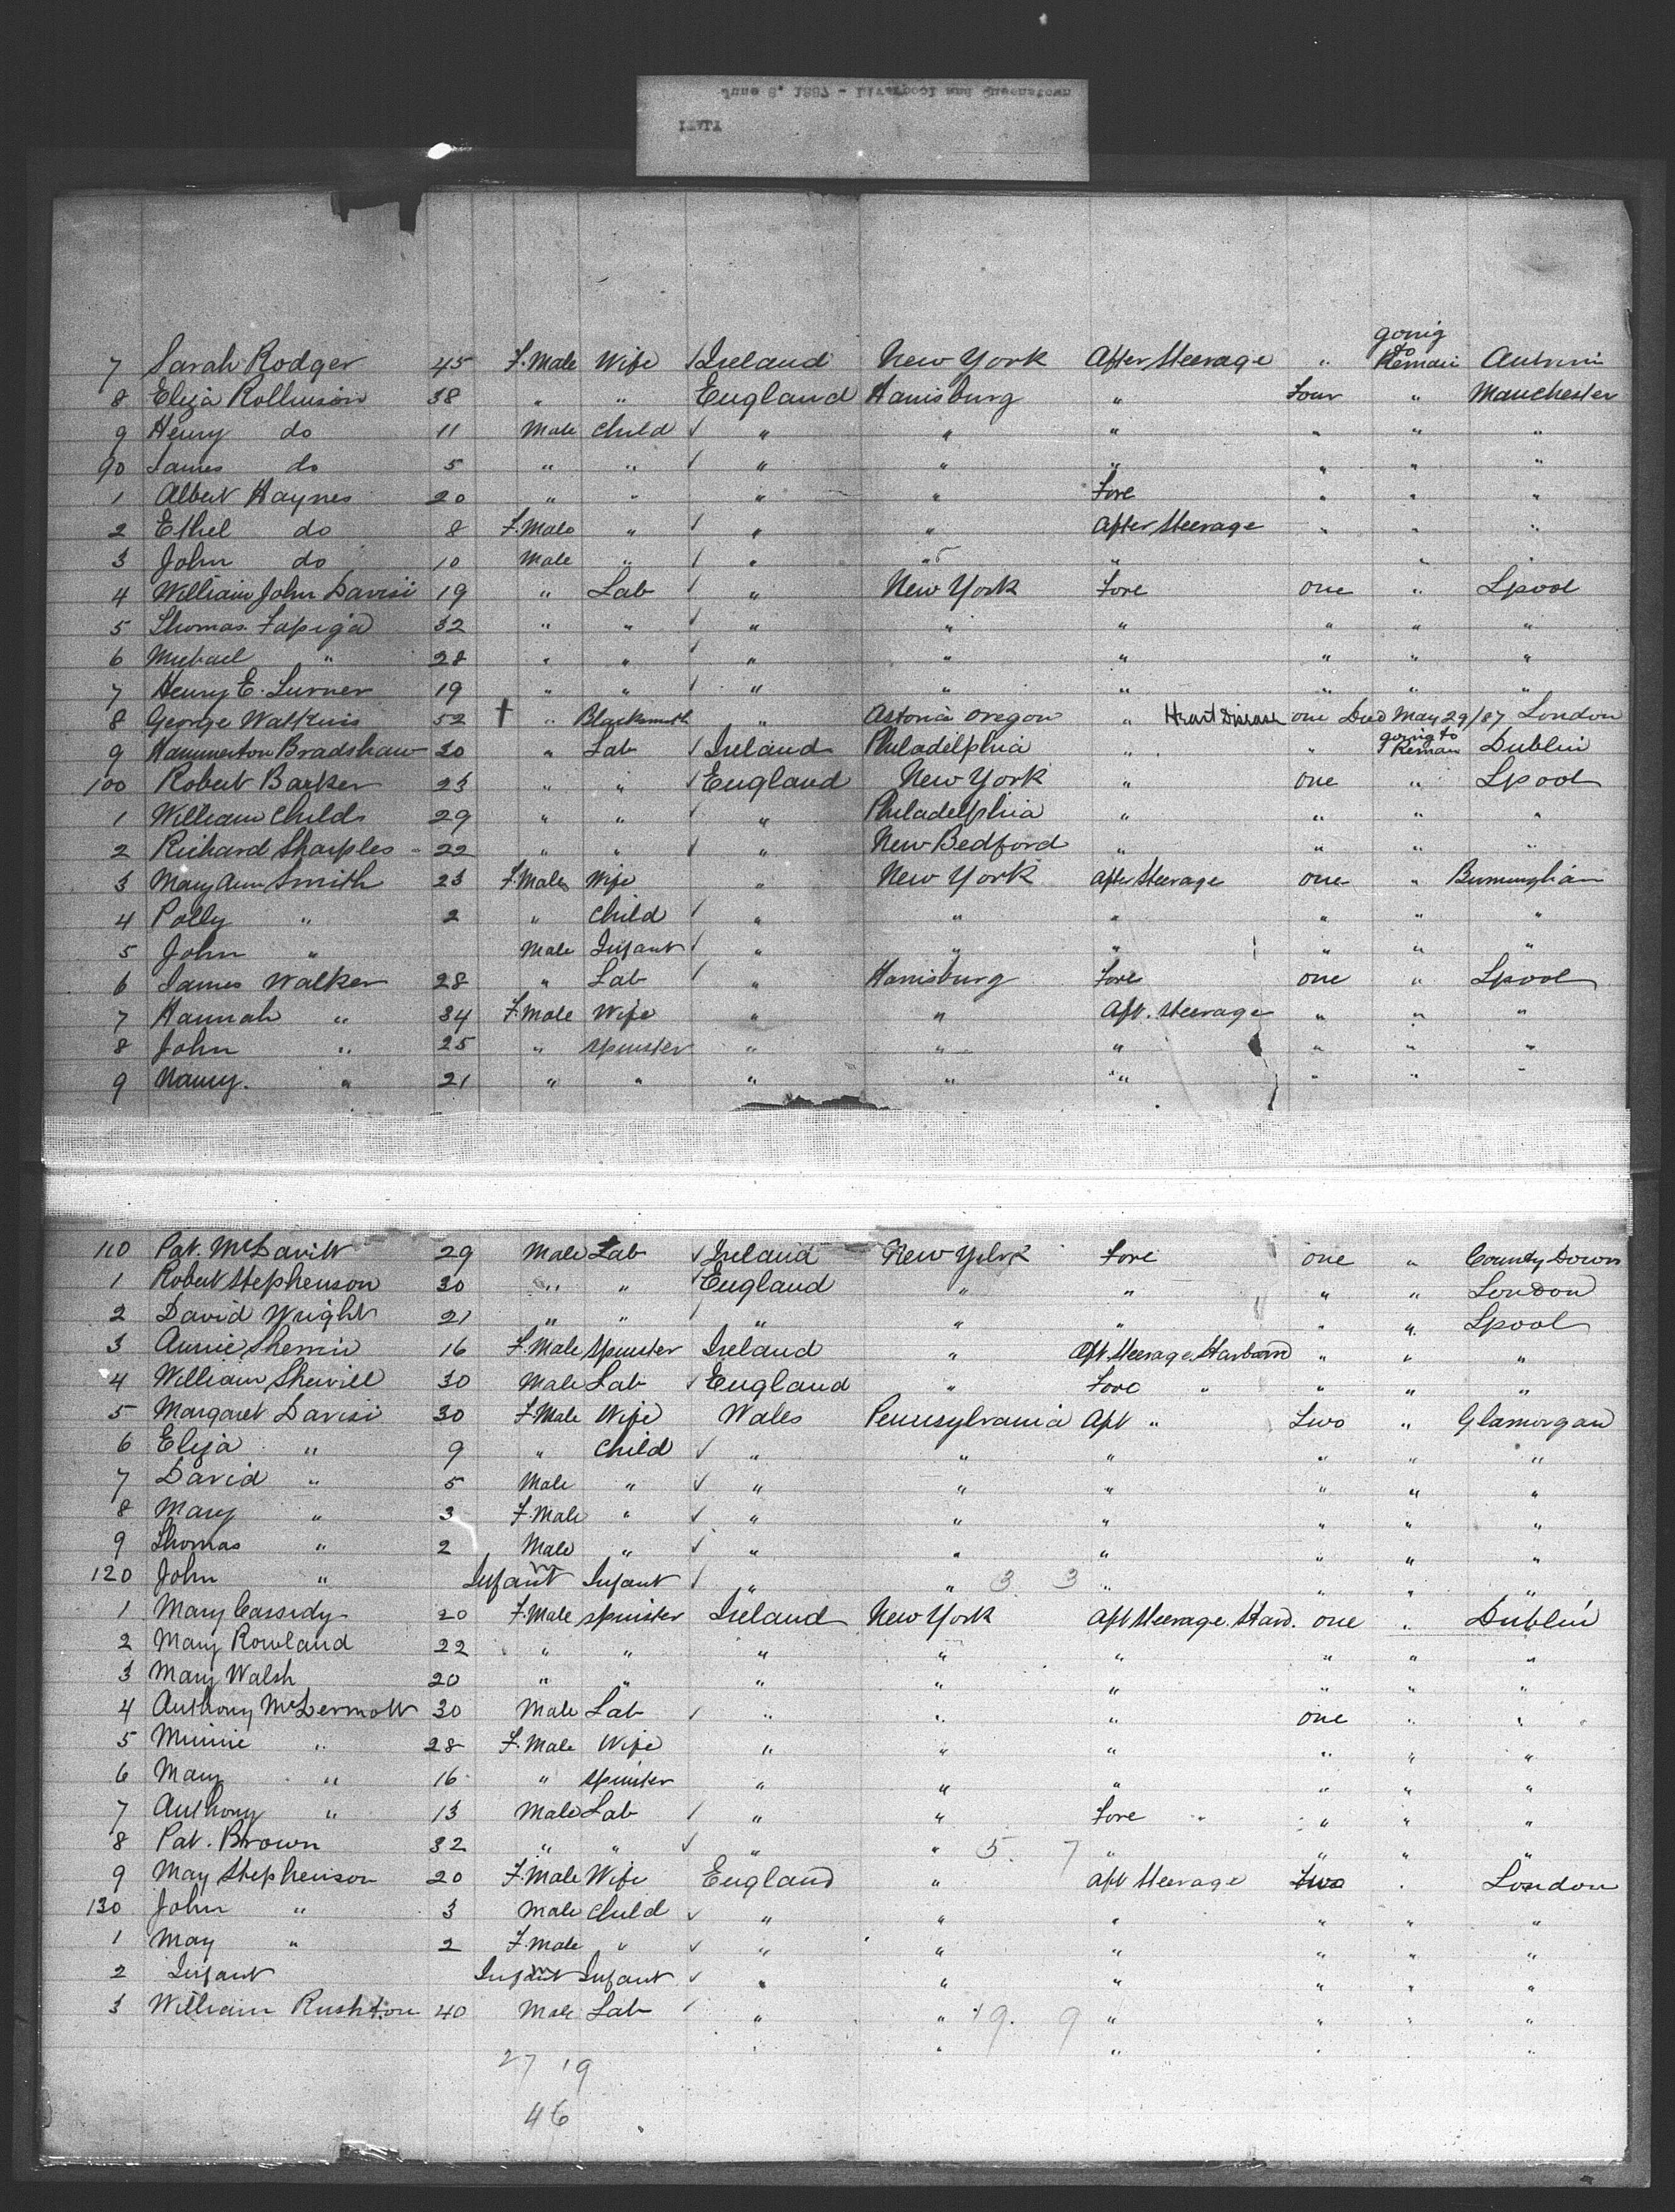 June 8, 1887 - Liverpool and Queenstown
going
to
7 Sarah Rodger 45 F.Male Wife ✓ Ireland New York After Steerage " Remain Antrim
8 Eliza Rollinson 38 " " England Harrisburg " Four " Manchester
9 Henry do 11 Male Child ✓ " " " " " "
90 James do 5 " " ✓ " " " " " "
1 Albert Haynes 20 " " " " Fore " " "
2 Ethel do 8 F.Male " ✓ " " After Steerage " " "
3 John do 10 Male " ✓ " " " " "
4 William John Davisi 19 " Lab ✓ " New York Fore one " Lpool
5 Thomas 32 " " ✓ " " " " " "
6 Michael " 28 " " ✓ " " " " " "
7 Henry E. Turner 19 " " ✓ " " " " " "
8 George Watkins 52 † " Blacksmith " Astoria Oregon " Heart Disease one Died May 29/87 London
going to
9 Hammerton Bradshaw 20 " Lab ✓ Ireland Philadelphia " " Remain Dublin
100 Robert Barker 23 " " ✓ England New York " one " Lpool
1 William Childs 29 " " ✓ " Philadelphia " " " "
2 Richard Sharples 22 " " ✓ " New Bedford " " " "
3 Mary Ann Smith 23 F.Male Wife " New York After Steerage one " Birmingham
4 Polly " 2 " Child ✓ " " " " " "
5 John " Male Infant ✓ " " " " " "
6 James Walker 28 " Lab ✓ " Harrisburg Fore one " Lpool
7 Hannah " 34 F.Male Wife " " Aft. Steerage " " "
8 John " 25 " Spinster " " " " " "
9 Nancy. " 21 " " " " " " " "
110 Pat. McDavitt 29 Male Lab ✓ Ireland New York Fore one " County Down
1 Robert Stephenson 30 " " ✓ England " " " " London
2 David Wright 21 " " ✓ " " " " " Lpool
3 Annie Sherrin 16 F.Male Spinster Ireland " Aft. Steerage Starboard " " "
4 William 30 Male Lab ✓ England " Fore " " " "
5 Margaret Davisi 30 F.Male Wife Wales Pennsylvania Aft " Two " Glamorgan
6 Eliza " 9 " Child ✓ " " " " " "
7 David " 5 Male " ✓ " " " " " "
8 Mary " 3 F.Male " ✓ " " " " " "
9 Thomas " 2 Male " ✓ " " " " " "
120 John " Infant m Infant ✓ " " 3 3 " " " "
1 Mary Cassidy 20 F.Male Spinster Ireland New York Aft Steerage Starb. one " Dublin
2 Mary Rowland 22 " " " " " " " "
3 Mary Walsh 20 " " " " " " " "
4 Anthony McDermott 30 Male Lab ✓ " " " one " "
5 Minnie " 28 F.Male Wife " " " " " "
6 Mary " 16 " Spinster " " " " " "
7 Anthony " 13 Male Lab ✓ " " Fore " " " "
8 Pat. Brown 32 " " ✓ " " 5. 7 " " " "
9 May Stephenson 20 F.Male Wife England " Aft Steerage Two " London
130 John " 3 Male Child ✓ " " " " " "
1 May " 2 F.Male " ✓ " " " " " "
2 Infant Infant m Infant ✓ " " " " " "
3 William Rushton 40 Male Lab ✓ " " 19. 9 " " " "
" " " " "
27 19
46